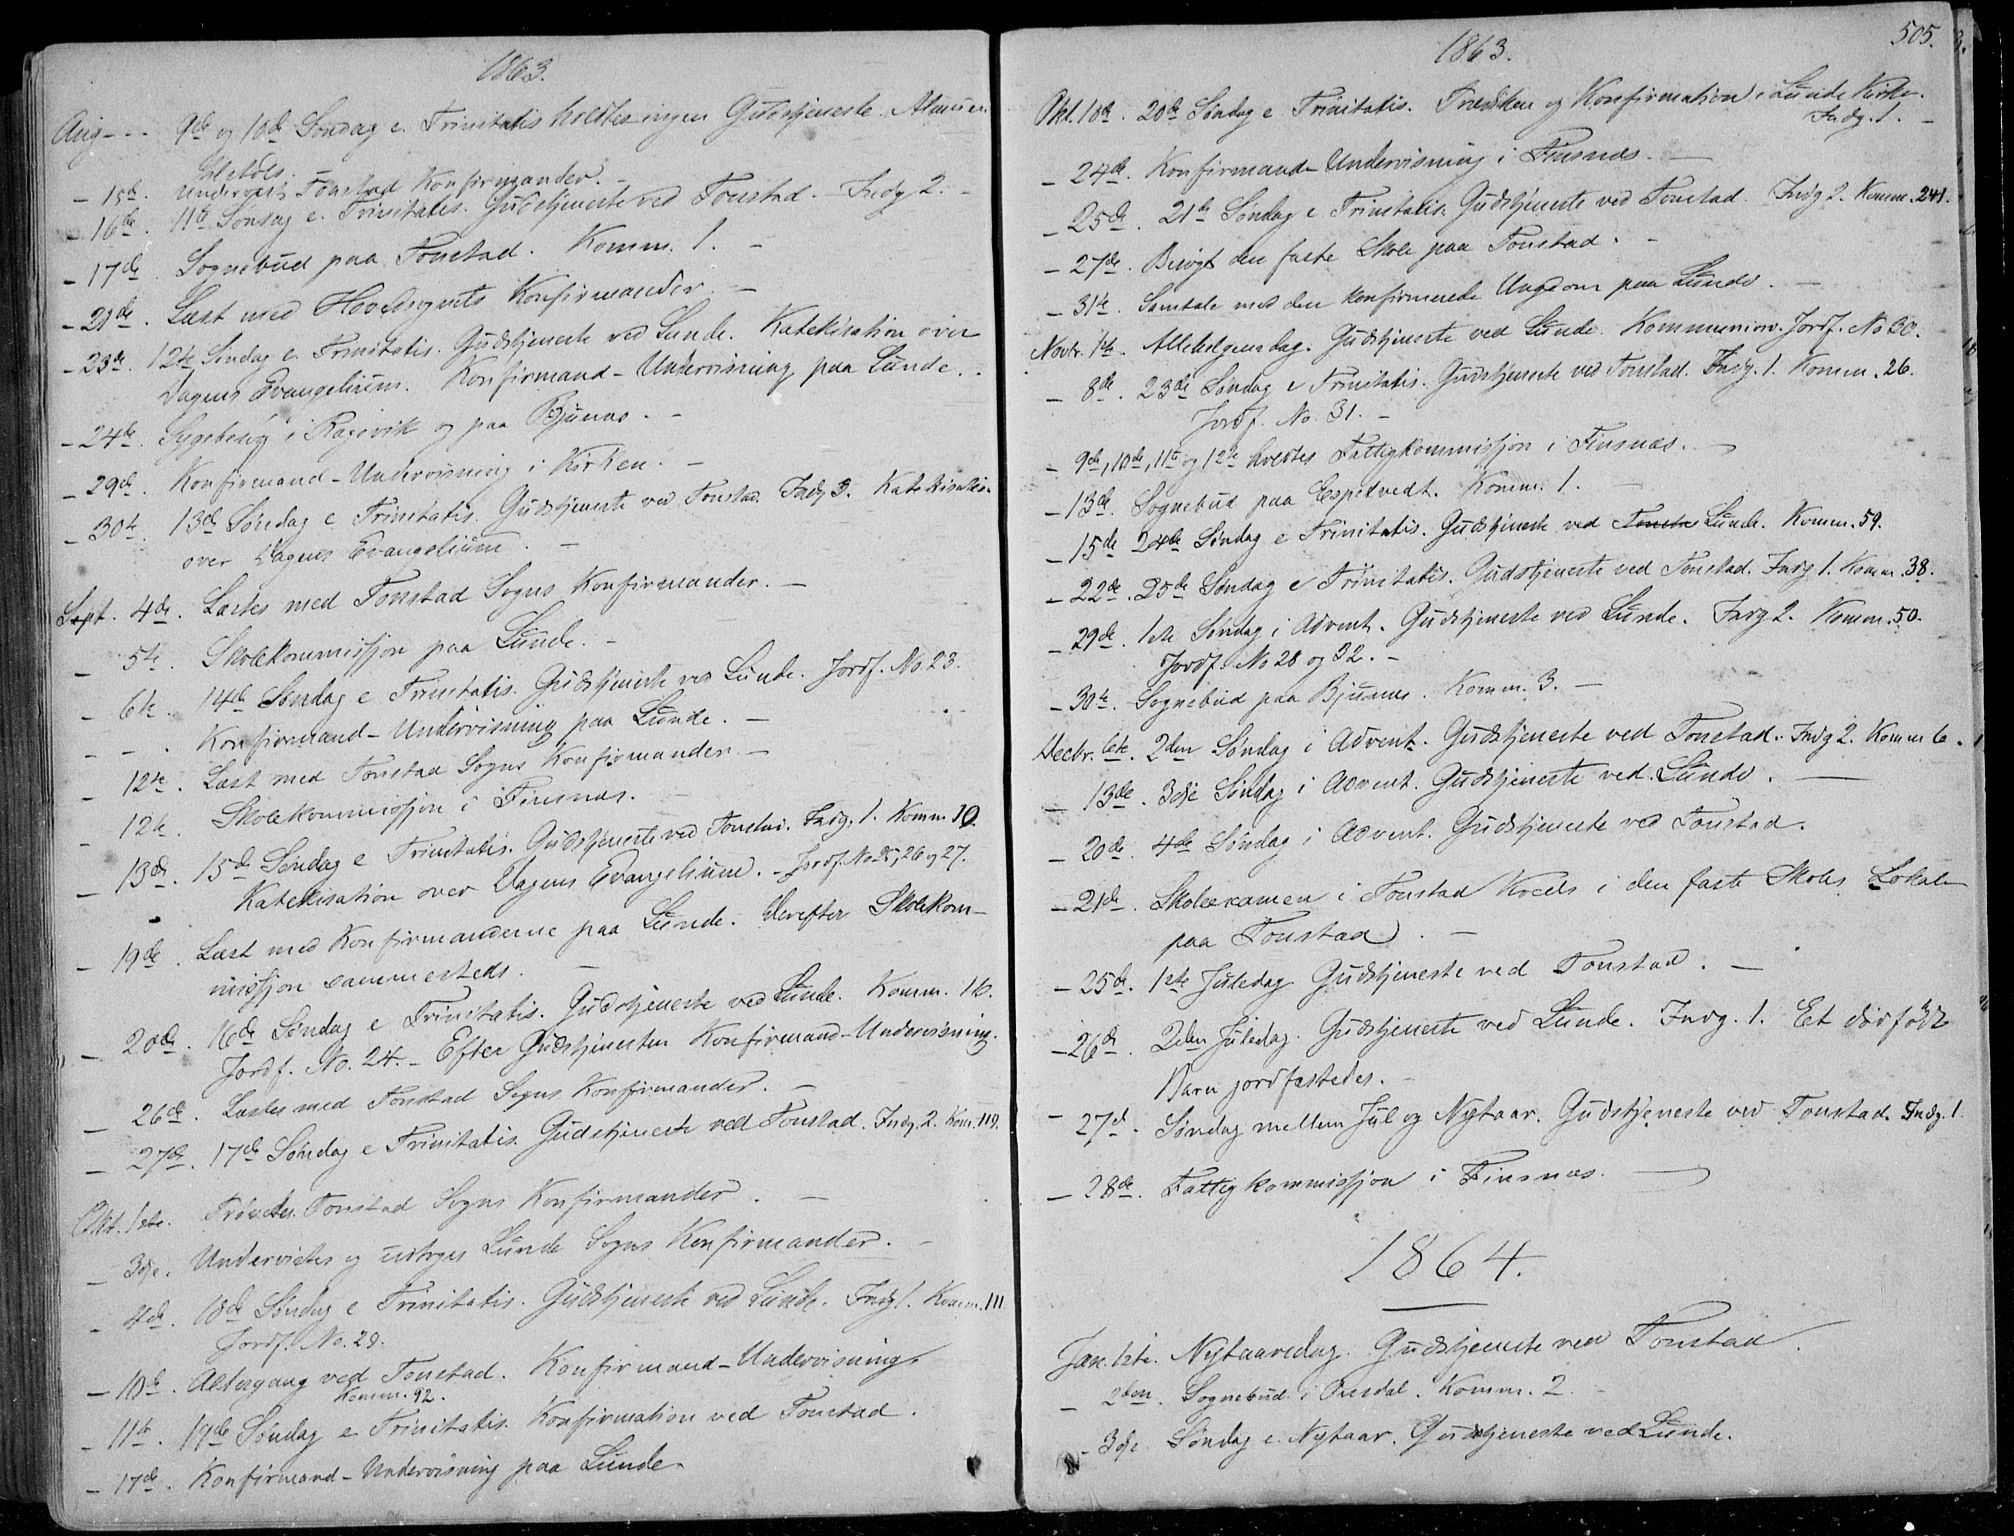 1863.
Aug. - - 9de og 10de Søndag e. Trinitatis holdtes ingen Gudstjeneste.
- 15de. Tonstad Konfirmander. -
- 16de. 11te Søndag e. Trinitatis. Gudstjeneste ved Tonstad. Indg 2. -
- 17de. Sognebud paa Tonstad. Komm. 1. -
- 21de. Læst med Hovedsognets Konfirmander. -
- 23de. 12te Søndag e. Trinitatis. Gudstjeneste ved Lunde. Katekisation over
Dagens Evangelium. Konfirmand-Undervisning paa Lunde. -
- 24de. Sygebesøg i Ragevik og paa Bjunes. -
- 29de. Konfirmand-Undervisning i Kirken. -
- 30te. 13de Søndag e Trinitatis. Gudstjeneste ved Tonstad. Indg 3. Katekisation
over Dagens Evangelium. -
Sept. 4de. Læstes med Tonstad Sogns Konfirmander. -
- 5te. Skolekommissjon paa Lunde. -
- 6te. 14de Søndag e Trinitatis. Gudstjeneste ved Lunde. Jordf. No. 23.
- - . Konfirmand-Undervisning paa Lunde. -
- 12te. Læst med Tonstad Sogns Konfirmander. -
- 12te. Skolekommissjon i Finsnæs. -
- 13de. 15de Søndag e Trinitatis. Gudstjeneste ved Tonstad. Indg. 1. Komm. 10.
Katekisation over Dagens Evangelium. - Jordf. No 25, 26 og 27.
- 19de. Læst med Konfirmanderne paa Lunde. Derefter Skolekom-
missjon sammesteds. -
- 20de. 16de Søndag e Trinitatis. Gudstjeneste ved Lunde. Komm. 16.
Jordf. No. 24. - Efter Gudstjenesten Konfirmand-Undervisning.
- 26de. Læstes med Tonstad Sogns Konfirmander. -
- 27de. 17de Søndag e Trinitatis. Gudstjeneste ved Tonstad. Indg. 2. Kom. 119.
Okt. 1ste. Prøvedes Tonstad Sogns Konfirmander. -
- 3dje. Undervistes og udtoges Lunde Sogns Konfirmander. -
- 4de. 18de Søndag e Trinitatis. Gudstjeneste ved Lunde. Indg 1. Komm. 111
Jordf. No. 29.
- 10de. Altergang ved Tonstad. Konfirmand-Undervisning.
Komm. 92.
- 11te. 19de Søndag e Trinitatis. Konfirmation ved Tonstad.
- 17de. Konfirmand-Undervisning paa Lunde.
505.
1863.
Okt. 18de. 20de Søndag e Trinitatis. Prædiken og Konfirmation i Lunde Kirke.
Indg. 1. -
- 24de. Konfirmand-Undervisning i Finsnæs. -
- 25de. 21de Søndag e Trinitatis. Gudstjeneste ved Tonstad. Indg 2. Komm. 241.
- 27de. Besøgt den faste Skole paa Tonstad. -
- 31te. Samtale med den konfirmerede Ungdom paa Lunde. -
Novbr. 1ste. Allehelgensdag. Gudstjeneste ved Lunde. Kommunion. Jordf. No 30.
- 8de. 23de Søndag e Trinitatis. Gudstjeneste ved Tonstad. Indg. 1. Komm. 26.
Jordf. No. 31. -
- 9de, 10de, 11te og 12te holdtes Fattigkommissjon i Finsnæs. -
- 13de. Sognebud paa Espetvedt. Komm. 1. -
- 15de 24de Søndag e Trinitatis. Gudstjeneste ved Lunde. Komm. 59.
- 22de. 25de Søndag e Trinitatis. Gudstjeneste ved Tonstad. Indg 1. Komm. 38.
- 29de. 1ste Søndag i Advent. Gudstjeneste ved Lunde. Indg 2. Komm. 50.
Jordf. No 28 og 32. -
- 30te. Sognebud paa Bjunes. Komm. 3. -
Decbr. 6te. 2den Søndag i Advent. Gudstjeneste ved Tonstad. Indg 2. Komm 6.
- 13de. 3dje Søndag i Advent. Gudstjeneste ved Lunde. -
- 20de. 4de Søndag i Advent. Gudstjeneste ved Tonstad.
- 21de. Skoleexamen i Tonstad Kreds i den faste Skoles Lokale
paa Tonstad. -
- 25de. 1ste Juledag Gudstjeneste ved Tonstad. -
- 26de. 2den Juledag. Gudstjeneste ved Lunde. Indg. 1. Et dødfødt
Barn jordfæstedes. -
- 27de. Søndag mellem Jul og Nytaar. Gudstjeneste ved Tonstad. Indg. 1.
- 28de. Fattigkommissjon i Finsnæs. -
1864.
Jan. 1ste. Nytaarsdag. Gudstjeneste ved Tonstad.
- 2den. Sognebud i Ousdal. Komm. 2. -
- 3dje. Søndag e. Nytaar. Gudstjeneste ved Lunde.